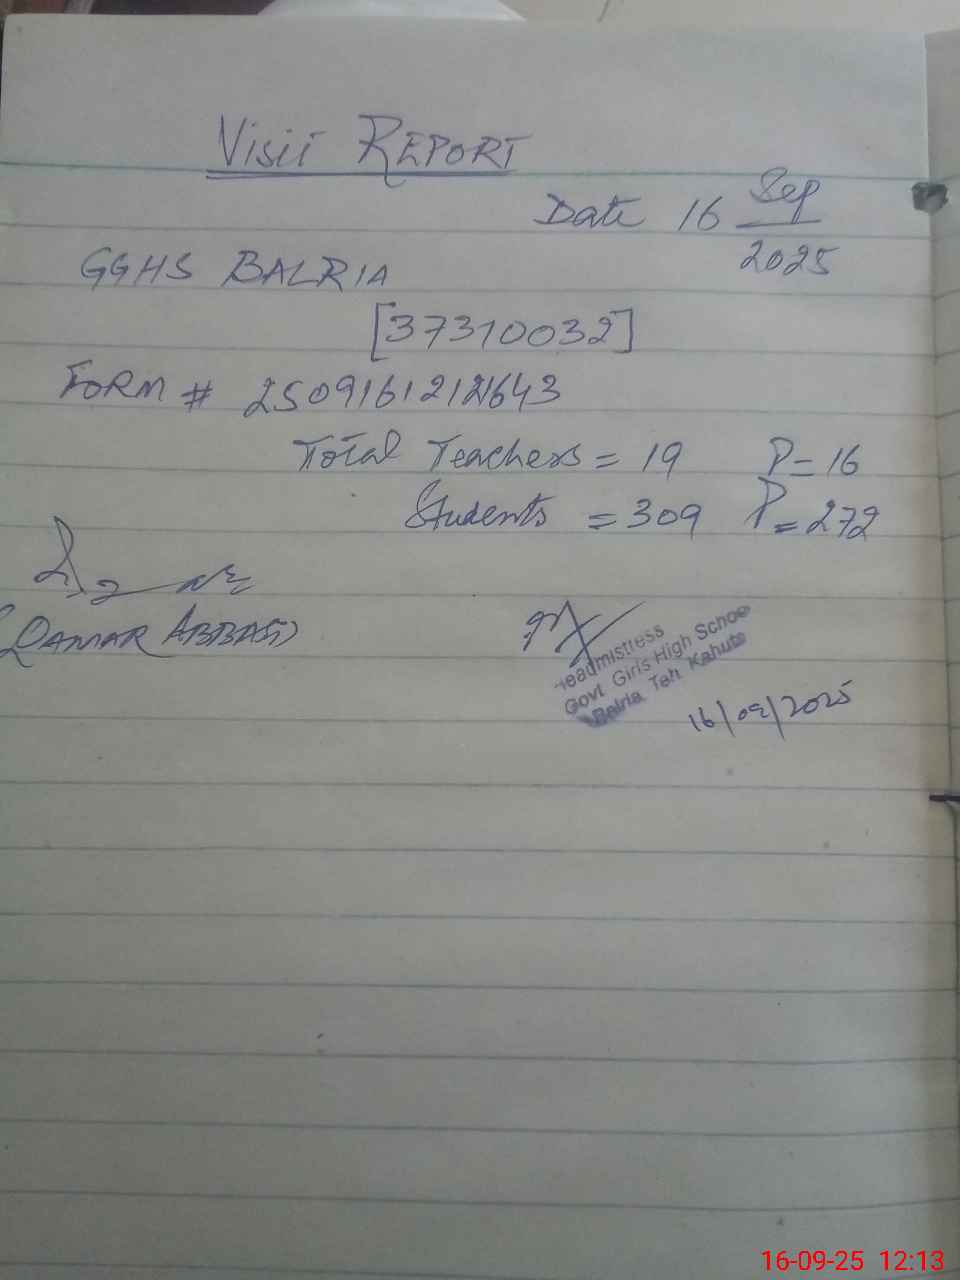 Visit REPORT
Date 16 Sep
2025
GGHS BALRIA
[37310032]
FORM # 25091612121643
Total Teachers = 19 P = 16
Students = 309 P = 272
(QAMAR ABBASI)
Headmistress
Govt Girls High School
Balria Teh Kahuta
16/09/2025
16-09-25 12:13